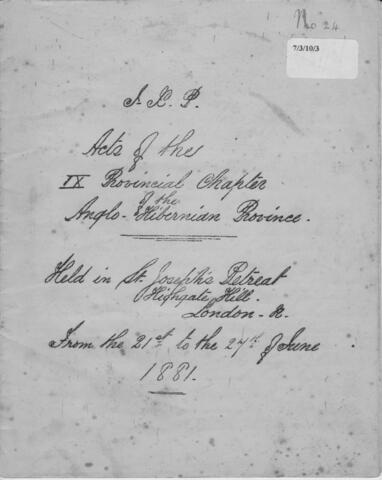 No 24
7/3/10/3
J. X. P.
Acts of the
IX Provincial Chapter
of the
Anglo-Hibernian Province.
Held in St. Joseph's Retreat
Highgate Hill.
London - N.
From the 21st to the 27th of June
1881.